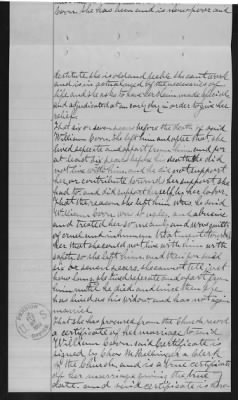 born. She has been and is now poor and
destitute she is old and feeble she can't work
and is in actual need of the necessaries of
life and she asks to have her claim made special
and adjudicated at an early day in order to give her
relief.
That six or seven years before the death of said
William she left him and after that she
lived separate and apart from him and for
at least six years before his death he did
not live with him and he did not support
her or contribute towards her support she
had to and did support herself by her labor
That the reason she left him was he said
William was so ugly and abusive
and treated her so mean and was guilty
of cruel and inhuman treatment towards
her that she could not live with him with
safety so she left him, and then for said
six or seven years she cannot tell just
how long, she lived separate and apart from
him until he died and since then she
has lived as his widow and has not again
married.
That she has procured from the Church record
a certificate of her marriage to said
William said certificate is
signed by Chas. a Clerk
of the Church, and is a true certificate
of her marriage giving the true
date, and said certificate is